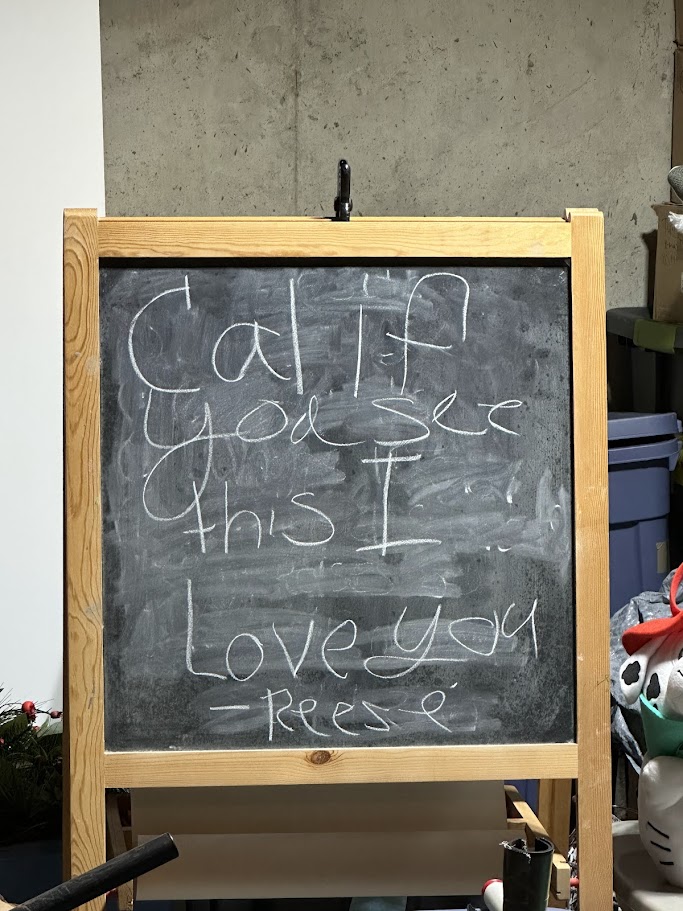 Cal if
you see
this I
Love you
-Reese